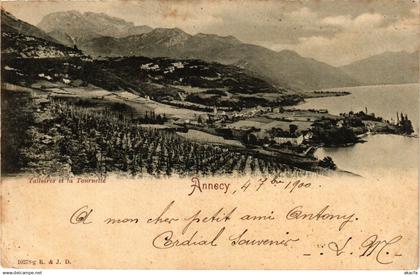 Talloires et la Tournette
ANNECY, 4 7bre 1900.
A mon cher petit ami Antony.
Cordial Souvenir
L. M.
10278-g R. & J. D.